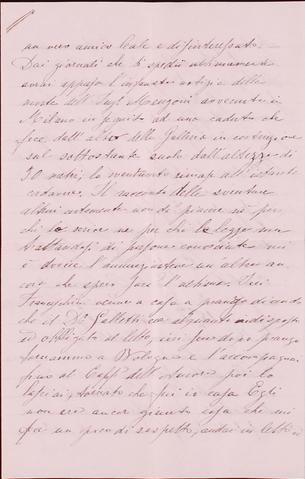 un vero amico leale e disinteressato.
Dai giornali che ti spedii ultimamente
avrai appreso l'infausta notizia della
morte dell' Ing. Mengoni avvenuta in
Milano in seguito ad una caduta che
fece dall' alto della Galleria in costruzione
sul sottostante suolo dall'altezza di
30 metri, lo sventurato rimase all'istante
cadavere. Il racconto delle sventure
altrui certamente non dà piacere nè per
chi lo scrive nè per chi lo legge ma
trattandosi di persone conosciute mi
è dovere l'annunziartene un'altra an
cor che spero farà l'
Franceschini venne a casa a pranzo dicendo
che il Dr. Galletti era alquanto indisposto
ed obbligato al letto, ieri dopo pranzo
tornammo a Bologna e l'accompagnai
fino al Caffè dell' poi lo
lasciai, tornato che fui in casa Egli
non era ancor giunto cosa che mi
fece un po' di sospetto, andai in letto e